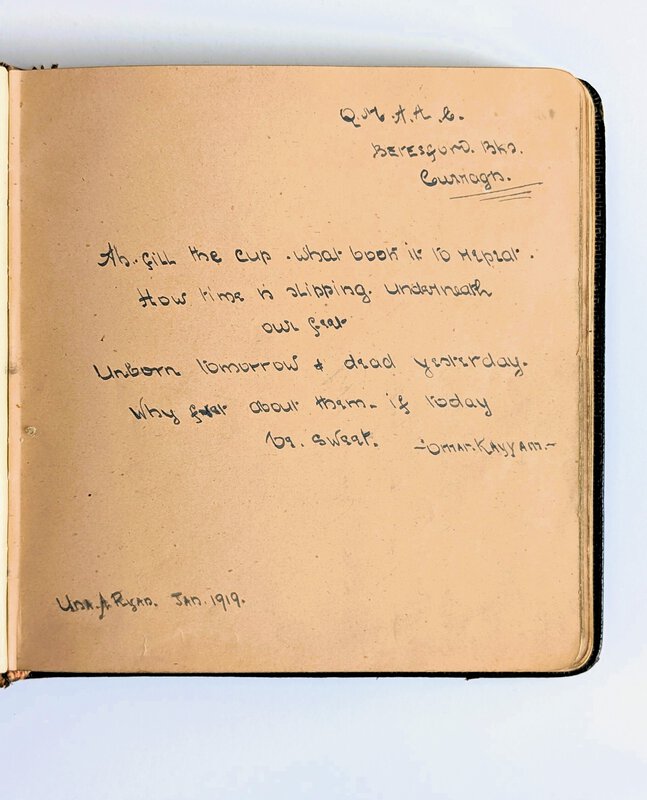 Q.M.A.A.C.
BERESFORD. Bks.
Curragh.
Ah. fill the cup. what boots it to repeat.
How time is slipping underneath
our feet
Unborn tomorrow & dead yesterday.
Why fret about them - if today
be. sweet. - Omar. Kayyam. -
Una. A. Ryan. Jan. 1919.